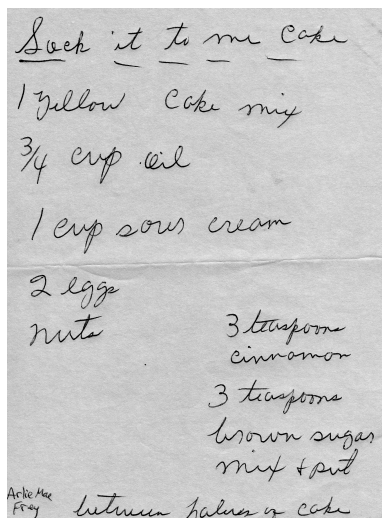 Sock it to me Cake
1 Yellow Cake mix
3/4 cup oil
1 cup sour cream
2 eggs
nuts
3 teaspoons
cinnamon
3 teaspoons
brown sugar
mix + put
between halves of cake
Arlie Mae
Frey